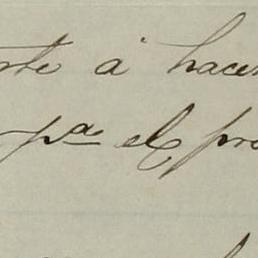 rte á hacer
pª el pro